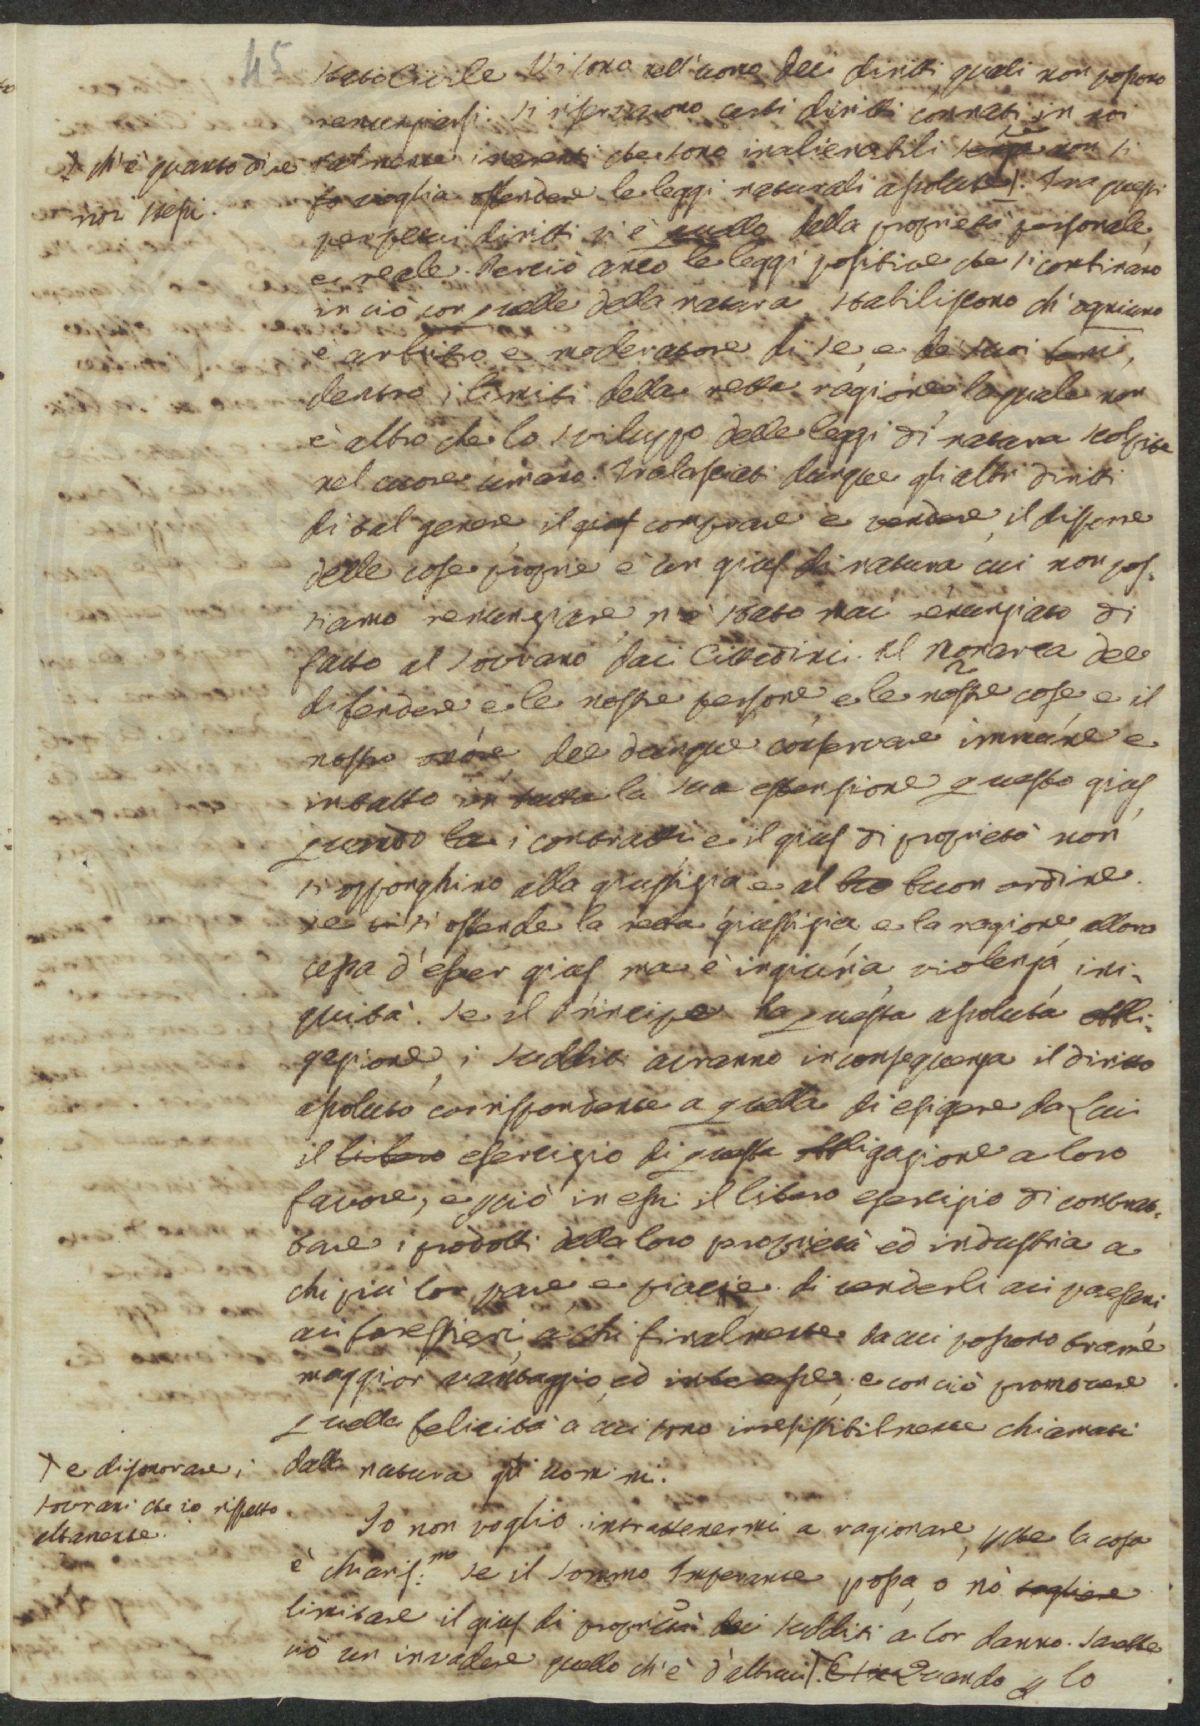 45
stato Civile. Vi sono nell'uomo dei diritti, quali non possono
renunziarsi. Si riserviamo certi diritti connati in noi
talmente inerenti che sono inalienabili se non si
voglia offendere le leggi naturali assolute). Tra questi
perpetui diritti vi è quello della proprietà personale,
e reale. Perciò anco le leggi positive che si combinano
in ciò con quelle della natura stabiliscono ch'ogniuno
è arbitro e moderatore di se, e de suoi beni,
dentro i limiti della retta ragione la quale non
è altro che lo sviluppo delle leggi di natura scolpite
nel cuore umano. Tralasciati dunque gli altri diritti
di tal genere, il gius comprare e vendere, il disporre
delle cose proprie è un gius di natura, cui non pos-
siamo renunziare, nè è stato mai renunziato di
fatto al sovrano dai Cittadini. Il Monarca dee
difendere e le nostre persone e le nostre cose e il
nostro onore, dee dunque conservare immune e
intatto in tutta la sua estensione questo gius,
quando la i contratti e il gius di proprietà non
si opponghino alla giustizia e al buo buon ordine.
Se si offende la retta giustizia, e la ragione, allora
cessa d'esser gius, ma è ingiuria, violenza, ini-
quità. Se il Principe ha questa assoluta obbli-
gazione, i sudditi avranno in conseguenza il diritto
assoluto corrispondente a quella di esigere da Lui
il libero esercizio di questa obbligazione a loro
favore, e perciò in essi il libero esercizio di contrat-
tare i prodotti della loro proprietà ed industria a
chi più lor pare, e piace, di venderli ai paesani
ai forestieri, a chi finalmente da cui possono trarne
maggior vantaggio, ed interesse, e con ciò promovere
quella felicità a cui sono irresistibilmente chiamati
dalla natura gli uomini.
Io non voglio intrattenermi a ragionare, perche la cosa
è chiariss.mo se il sommo Imperante possa, o nò togliere
limitare il gius di proprietà dei sudditi a lor danno. Sarebbe
ciò un invadere quello ch'è d'altrui). Quando per lo
) ch'è quanto dire
noi stessi.
) e disonorare i
sovrani che io rispetto
altamente.